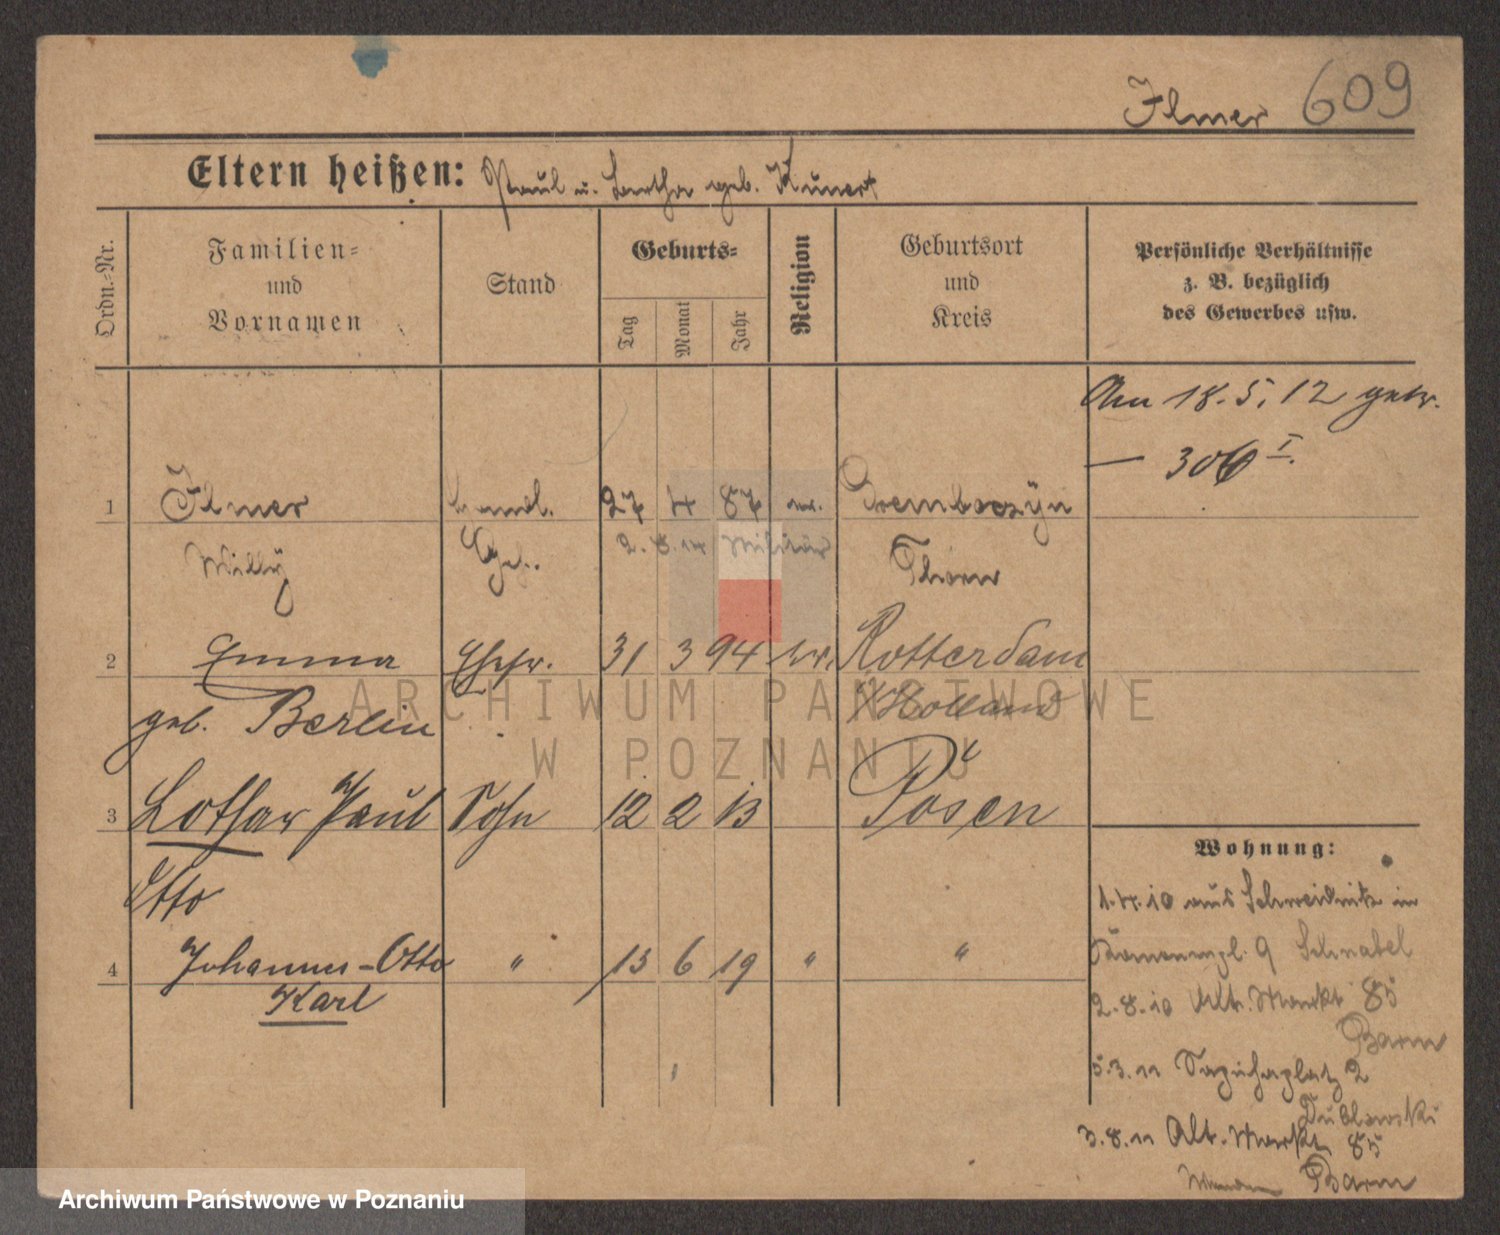 Ilmer 609
Eltern heißen: Paul u. Bertha geb. Kunert
Ordn.-Nr.
Familien-
und
Vornamen
Stand
Geburts-
Tag
Monat
Jahr
Religion
Geburtsort
und
Kreis
Persönliche Verhältnisse
z. B. bezüglich
des Gewerbes usw.
Am 18.5.12 getr.
— 306 I.
1 Ilmer Handl. 27 4 87 ev. Gremboczyn
Willy Geh. 2.8.14 Militär Thorn
2 Emma Ehefr. 31 3 94 ev. Rotterdam
geb. Berlin Holland
3 Lothar Paul Sohn 12 2 13 Posen
Otto
4 Johannes-Otto " 15 6 19 " "
Karl
Wohnung:
1.4.10 aus Schweidnitz in
9 Schnabel
2.8.10 Alt. Markt 85
Barm
5.3.11 Sapiehaplatz 2
3.8.11 Alt. Markt 85
Barm
ARCHIWUM PAŃSTWOWE
W POZNANIU
Archiwum Państwowe w Poznaniu